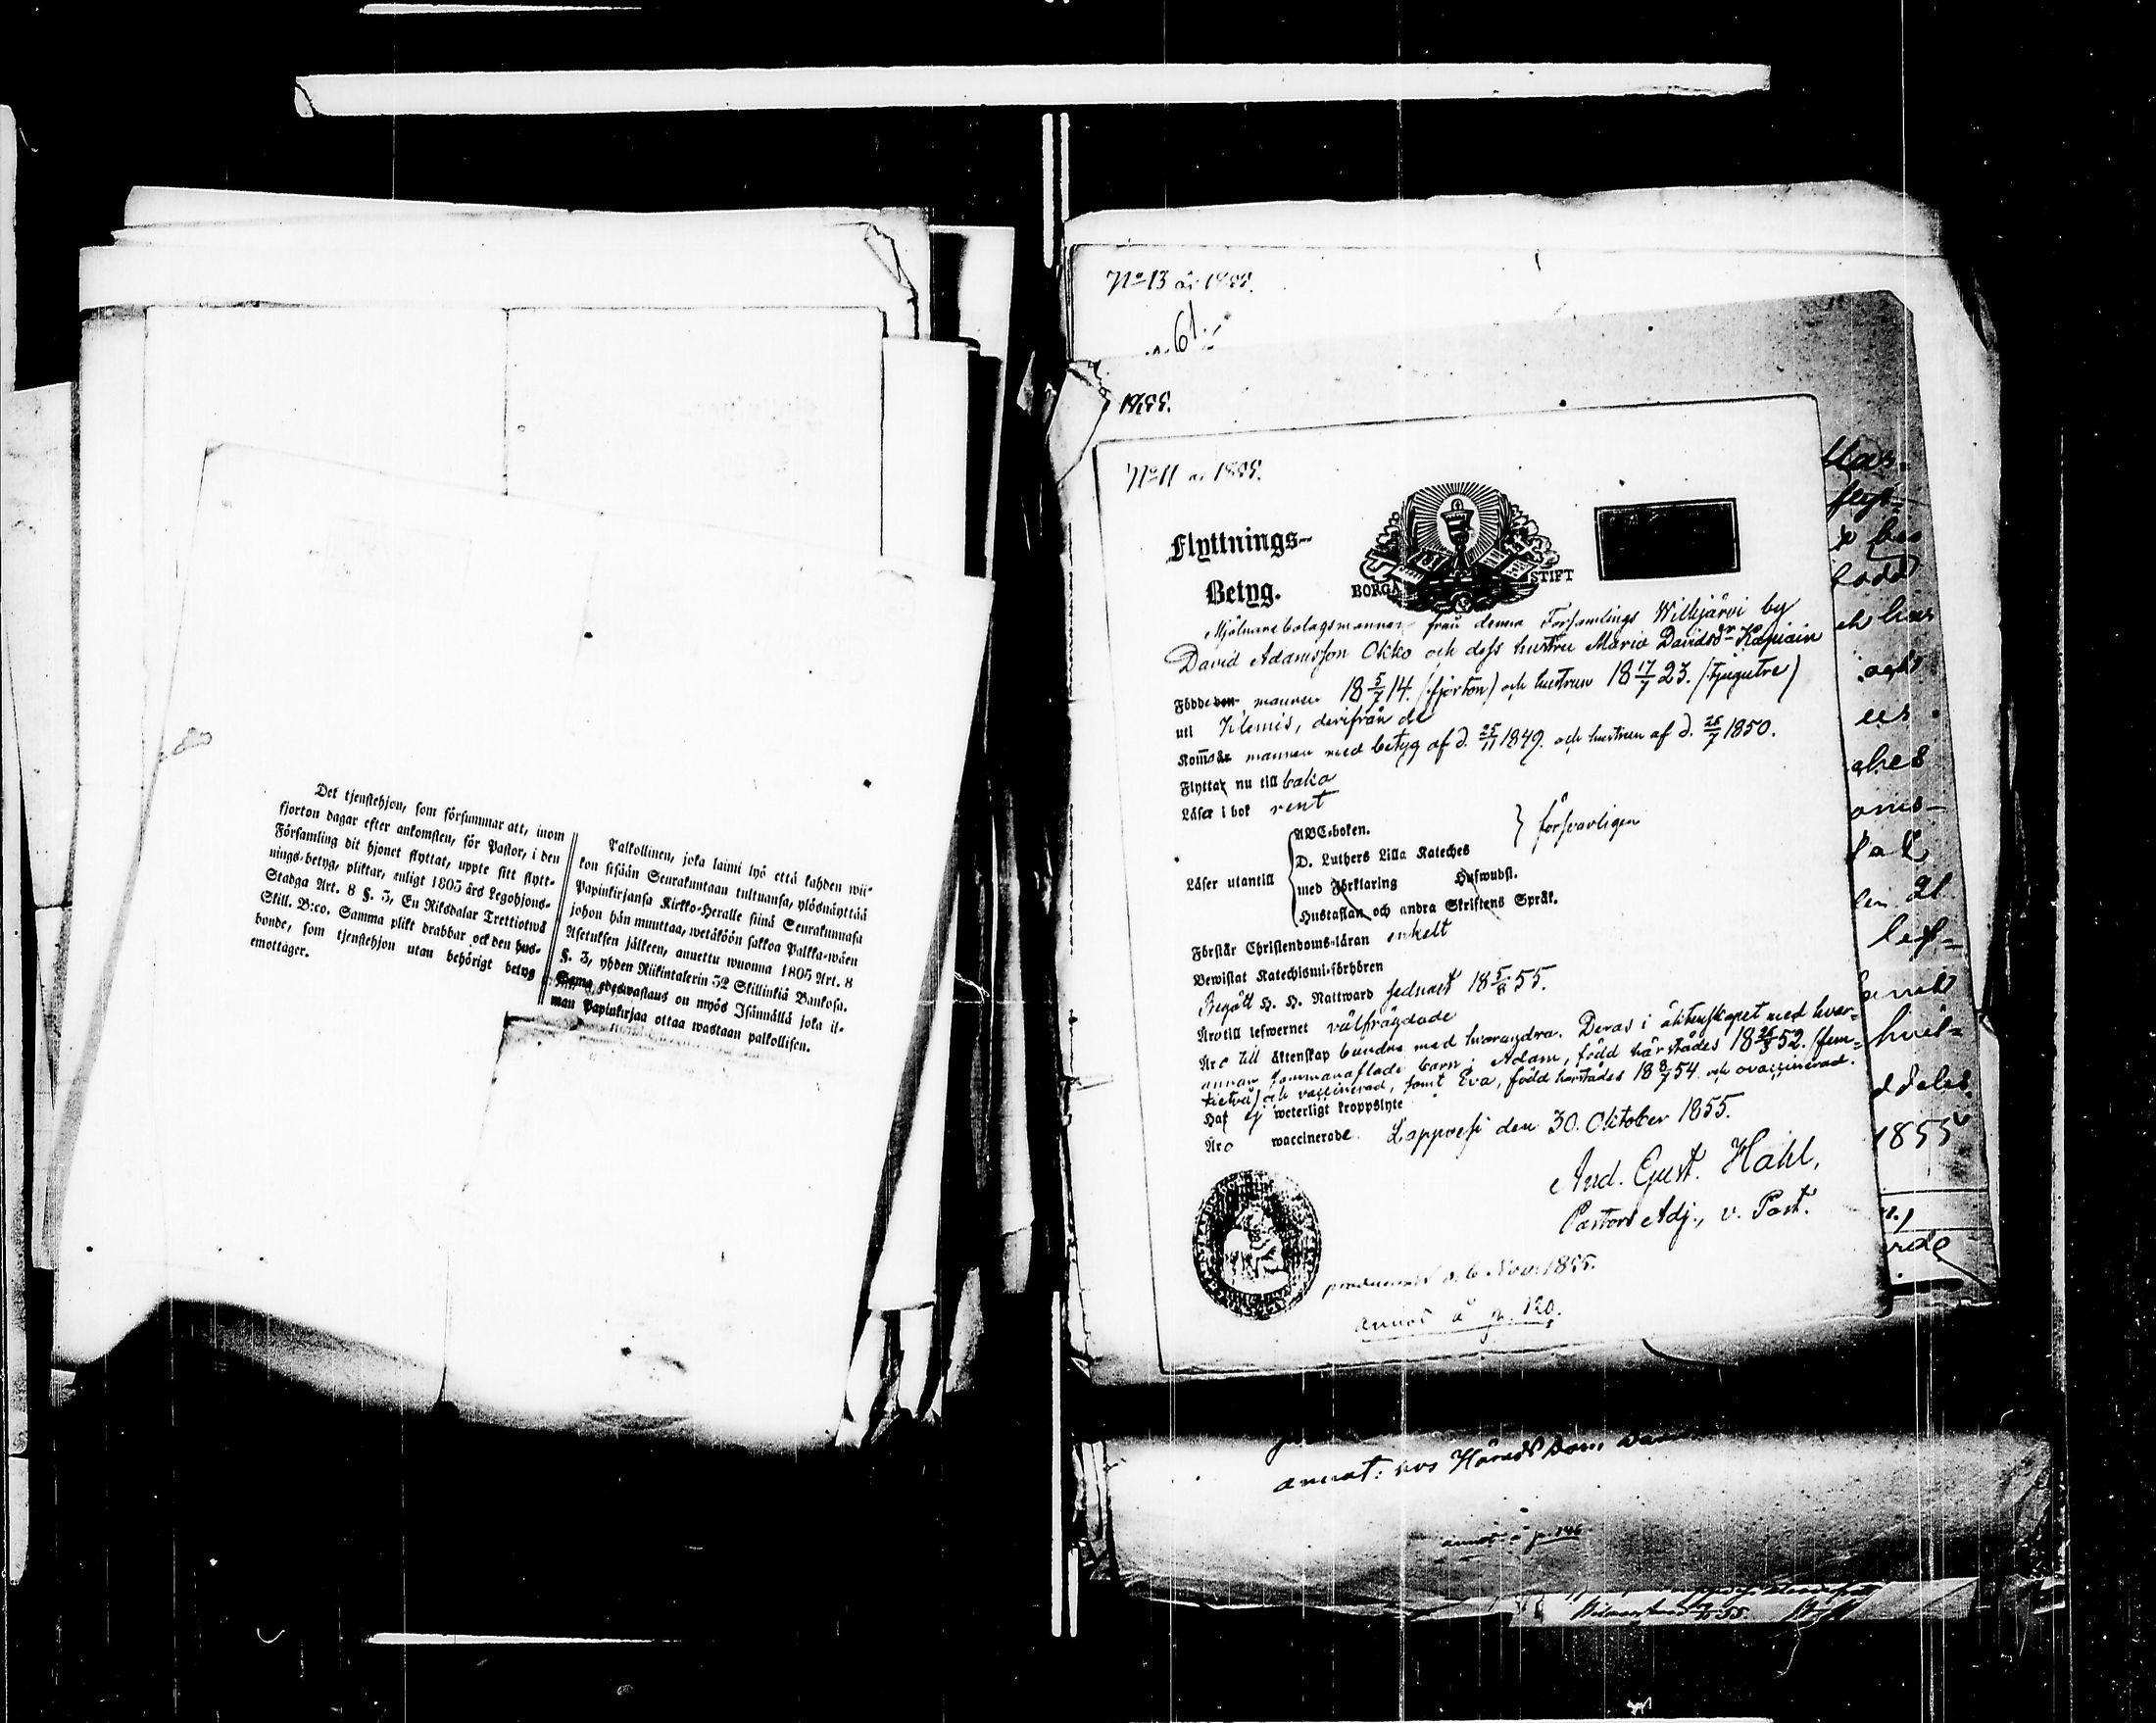 Det tjenstehjon, som försummar att, inom
fjorton dagar efter ankomsten, för Pastor, i den
Församling dit hjonet flyttat, uppte sitt flytt-
nings-betyg, pliktar, enligt 1805 års Legohjons-
Stadga Art. 8 §. 3, En Riksdalar Trettiotwå
Skill. B:co. Samma plikt drabbar ock den hus-
bonde, som tjenstehjon utan behörigt betyg
emottager.
Palkollinen, joka laimi lyö että kahden wii-
kon sisään Seurakuntaan tultuansa, ylösnäyttää
Papinkirjansa Kirkko-Heralle siinä Seurakunnasa
johon hän muuttaa, wetäköön sakkoa Palkka-wäen
Asetuksen jälkeen, annettu wuonna 1805 Art. 8
§. 3, yhden Riikintalerin 32 Skillinkiä Bankosa.
Sama edeswastaus on myös Isännällä joka il-
man Papinkirjaa ottaa wastaan palkollisen.
No 13 år 1855.
61.
1855.
No 11 a. 1855.
Flyttnings-
Betyg.
BORGÅ STIFT
Mjölnarebolagsmannen från denna Församlings Wilkjärvi by
David Adamsson Okko och dess hustru Maria Davidsdr
Födde den mannen 18 5/7 14. (fjorton) och hustrun 18 17/7 23. (tjugutre)
uti Klemis, derifrån de
Kom̅o är mannen med betyg af d. 25/11 1849. och hustrun af d. 26/7 1850.
Flyttar nu till baka
Läser i bok rent
Läser utantill
ABC-boken.
D. Luthers Lilla Kateches
med Förklaring Huswudst.
Hustaflan och andra Skriftens Språk.
försvarligen
Förstår Christendoms-läran enkelt
Bewistat Katechismi-förhören
Begått H. H. Nattward sednast 18 5/8 55.
Äro till lefwernet välfrägdade
Äro till äktenskap bundne med hvarandra. Deras i äktenskapet med hvar-
annan sammanaflade barn: Adam, född härstädes 18 26/3 52. (fem-
tietvå) och vaccinerad, samt Eva, född härstädes 18 8/7 54. och ovaccinerad.
Haf ej weterligt kroppslyte
Äro waccinerade. Lappvesi den 30. Oktober 1855.
And. Gust. Hahl,
Pastors Adj., v. Past.
producerat d. 6 Nov. 1855.
annot å p. 120.
1855
annot: hos
annot å p. 146